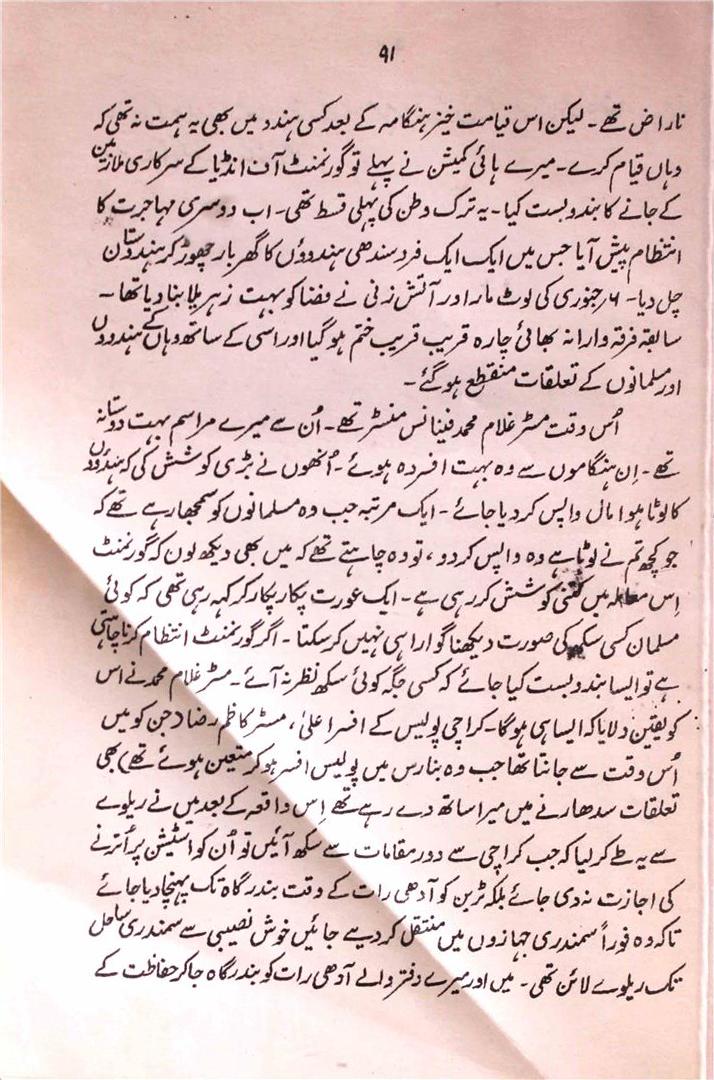 ۹۱
ناراض تھے۔ لیکن اس قیامت خیز ہنگامہ کے بعد کسی ہندو میں بھی یہ ہمت نہ تھی کہ
وہاں قیام کرے۔ میرے ہائی کمیشن نے پہلے تو گورنمنٹ آف انڈیا کے سرکاری ملازمین
کے جانے کا بندوبست کیا۔ یہ ترک وطن کی پہلی قسط تھی۔ اب دوسری مہاجرت کا
انتظام پیش آیا جس میں ایک ایک فرد سندھی ہندوؤں کا گھر بار چھوڑ کر ہندوستان
چل دیا۔ ۶ جنوری کی لوٹ مار اور آتش زنی نے فضا کو بہت زہریلا بنا دیا تھا۔
سابقہ فرقہ وارانہ بھائی چارہ قریب قریب ختم ہو گیا اور اسی کے ساتھ وہاں کے ہندوؤں
اور مسلمانوں کے تعلقات منقطع ہو گئے۔
اُس وقت مسٹر غلام محمد فینانس منسٹر تھے۔ اُن سے میرے مراسم بہت دوستانہ
تھے۔ اِن ہنگاموں سے وہ بہت افسردہ ہوئے۔ اُنھوں نے بڑی کوشش کی کہ ہندوؤں
کا لوٹا ہوا مال واپس کر دیا جائے۔ ایک مرتبہ جب وہ مسلمانوں کو سمجھا رہے تھے کہ
جو کچھ تم نے لوٹا ہے وہ واپس کر دو، تو وہ چاہتے تھے کہ میں بھی دیکھ لوں کہ گورنمنٹ
اِس معاملہ میں کتنی کوشش کر رہی ہے۔ ایک عورت پکار پکار کر کہہ رہی تھی کہ کوئی
مسلمان کسی سکھ کی صورت دیکھنا گوارا ہی نہیں کر سکتا۔ اگر گورنمنٹ انتظام کرنا چاہتی
ہے تو ایسا بندوبست کیا جائے کہ کسی جگہ کوئی سکھ نظر نہ آئے۔ مسٹر غلام محمد نے اس
کو یقین دلایا کہ ایسا ہی ہوگا۔ کراچی پولیس کے افسر اعلیٰ، مسٹر کاظم رضا (جن کو میں
اُس وقت سے جانتا تھا جب وہ بنارس میں پولیس افسر ہو کر متعین ہوئے تھے) بھی
تعلقات سدھارنے میں میرا ساتھ دے رہے تھے اِس واقعہ کے بعد میں نے ریلوے
سے یہ طے کر لیا کہ جب کراچی سے دور مقامات سے سکھ آئیں تو اُن کو اسٹیشن پر اُترنے
کی اجازت نہ دی جائے بلکہ ٹرین کو آدھی رات کے وقت بندرگاہ تک پہنچا دیا جائے
تاکہ وہ فوراً سمندری جہازوں میں منتقل کر دیے جائیں خوش نصیبی سے سمندری ساحل
تک ریلوے لائن تھی۔ میں اور میرے دفتر والے آدھی رات کو بندرگاہ جا کر حفاظت کے